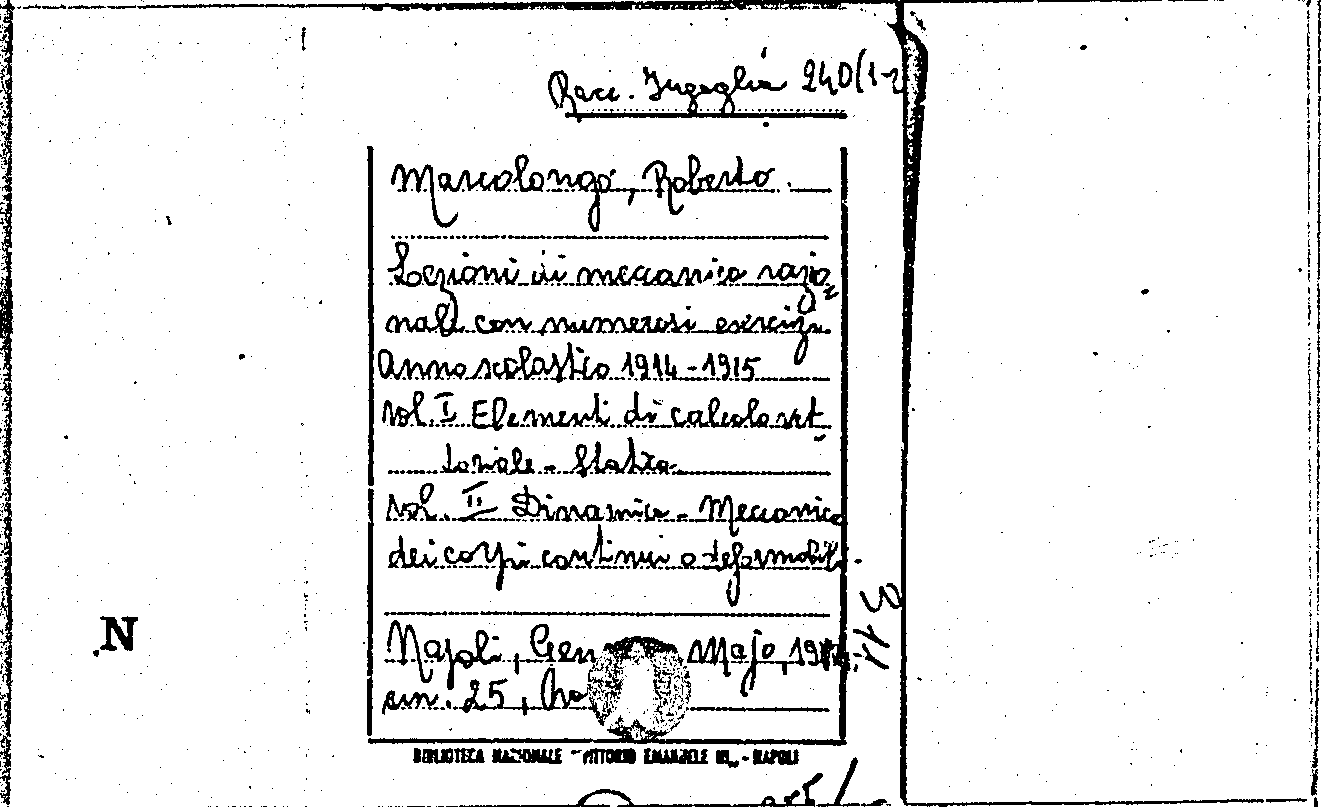 Racc. 240(1-2
Marcolongo, Roberto.
Lezioni di meccanica razio
nale con numerosi esercizi
Anno scolastico 1914-1915
vol. I Elementi di calcolo vet
toriale - Statica
vol. II Dinamica - Meccanica
dei corpi continui o deformabili.
N
Napoli, Gen Majo,
cm. 25,
BIBLIOTECA NAZIONALE "VITTORIO EMANUELE III" - NAPOLI